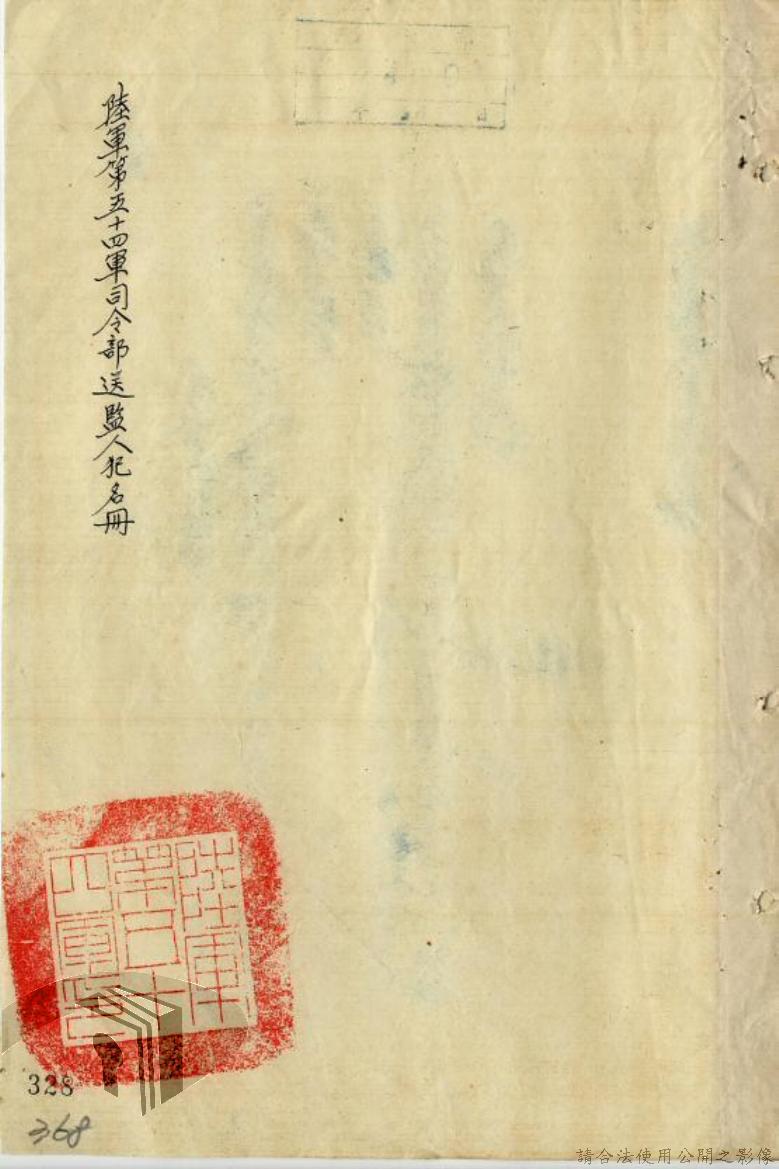 陸軍第五十四軍司令部送監人犯名冊
陸軍
第五十
四軍印
328
368
請合法使用公開之影像